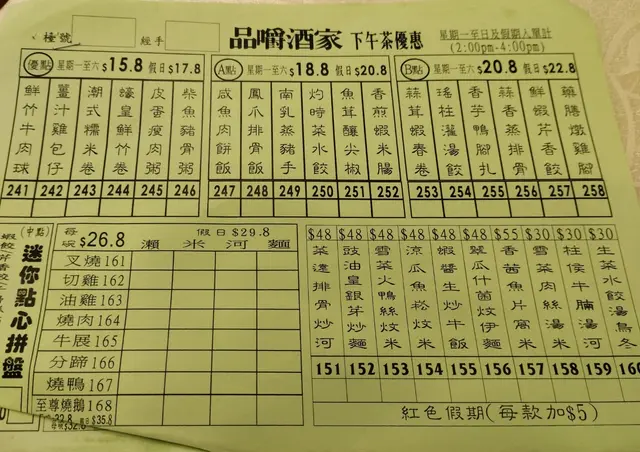 檯號
經手
品嚼酒家 下午茶優惠
星期一至日及假期入單計
(2:00pm-4:00pm)
優點 星期一至六 $15.8 假日 $17.8
鮮竹牛肉球 241
薑汁雞包仔 242
潮式糯米卷 243
蠔皇鮮竹卷 244
皮蛋瘦肉粥 245
柴魚豬骨粥 246
A點 星期一至六 $18.8 假日 $20.8
咸魚肉餅飯 247
鳳爪排骨飯 248
南乳蒸豬手 249
灼時菜水餃 250
魚茸釀尖椒 251
香煎蝦米腸 252
B點 星期一至六 $20.8 假日 $22.8
蒜茸蝦春卷 253
瑤柱灌湯餃 254
香芋鴨腳扎 255
蒜香蒸排骨 256
鮮蝦芹香餃 257
藥膳燉雞腳 258
(中點)
迷你點心拼盤
每碗 $26.8 假日 $29.8
瀨 米 河 麵
叉燒 161
切雞 162
油雞 163
燒肉 164
牛展 165
分蹄 166
燒鴨 167
至尊燒鵝 168
$35.8
$48 菜遠排骨炒河 151
$48 豉油皇銀芽炒麵 152
$48 雪菜火鴨絲炆米 153
$48 涼瓜魚崧炆米 154
$48 蝦醬生炒牛飯 155
$48 翠瓜什菌炆伊麵 156
$55 香茜魚片窩米 157
$30 雪菜肉絲湯米 158
$30 柱侯牛腩湯河 159
$30 生菜水餃湯烏冬 160
紅色假期(每款加$5)